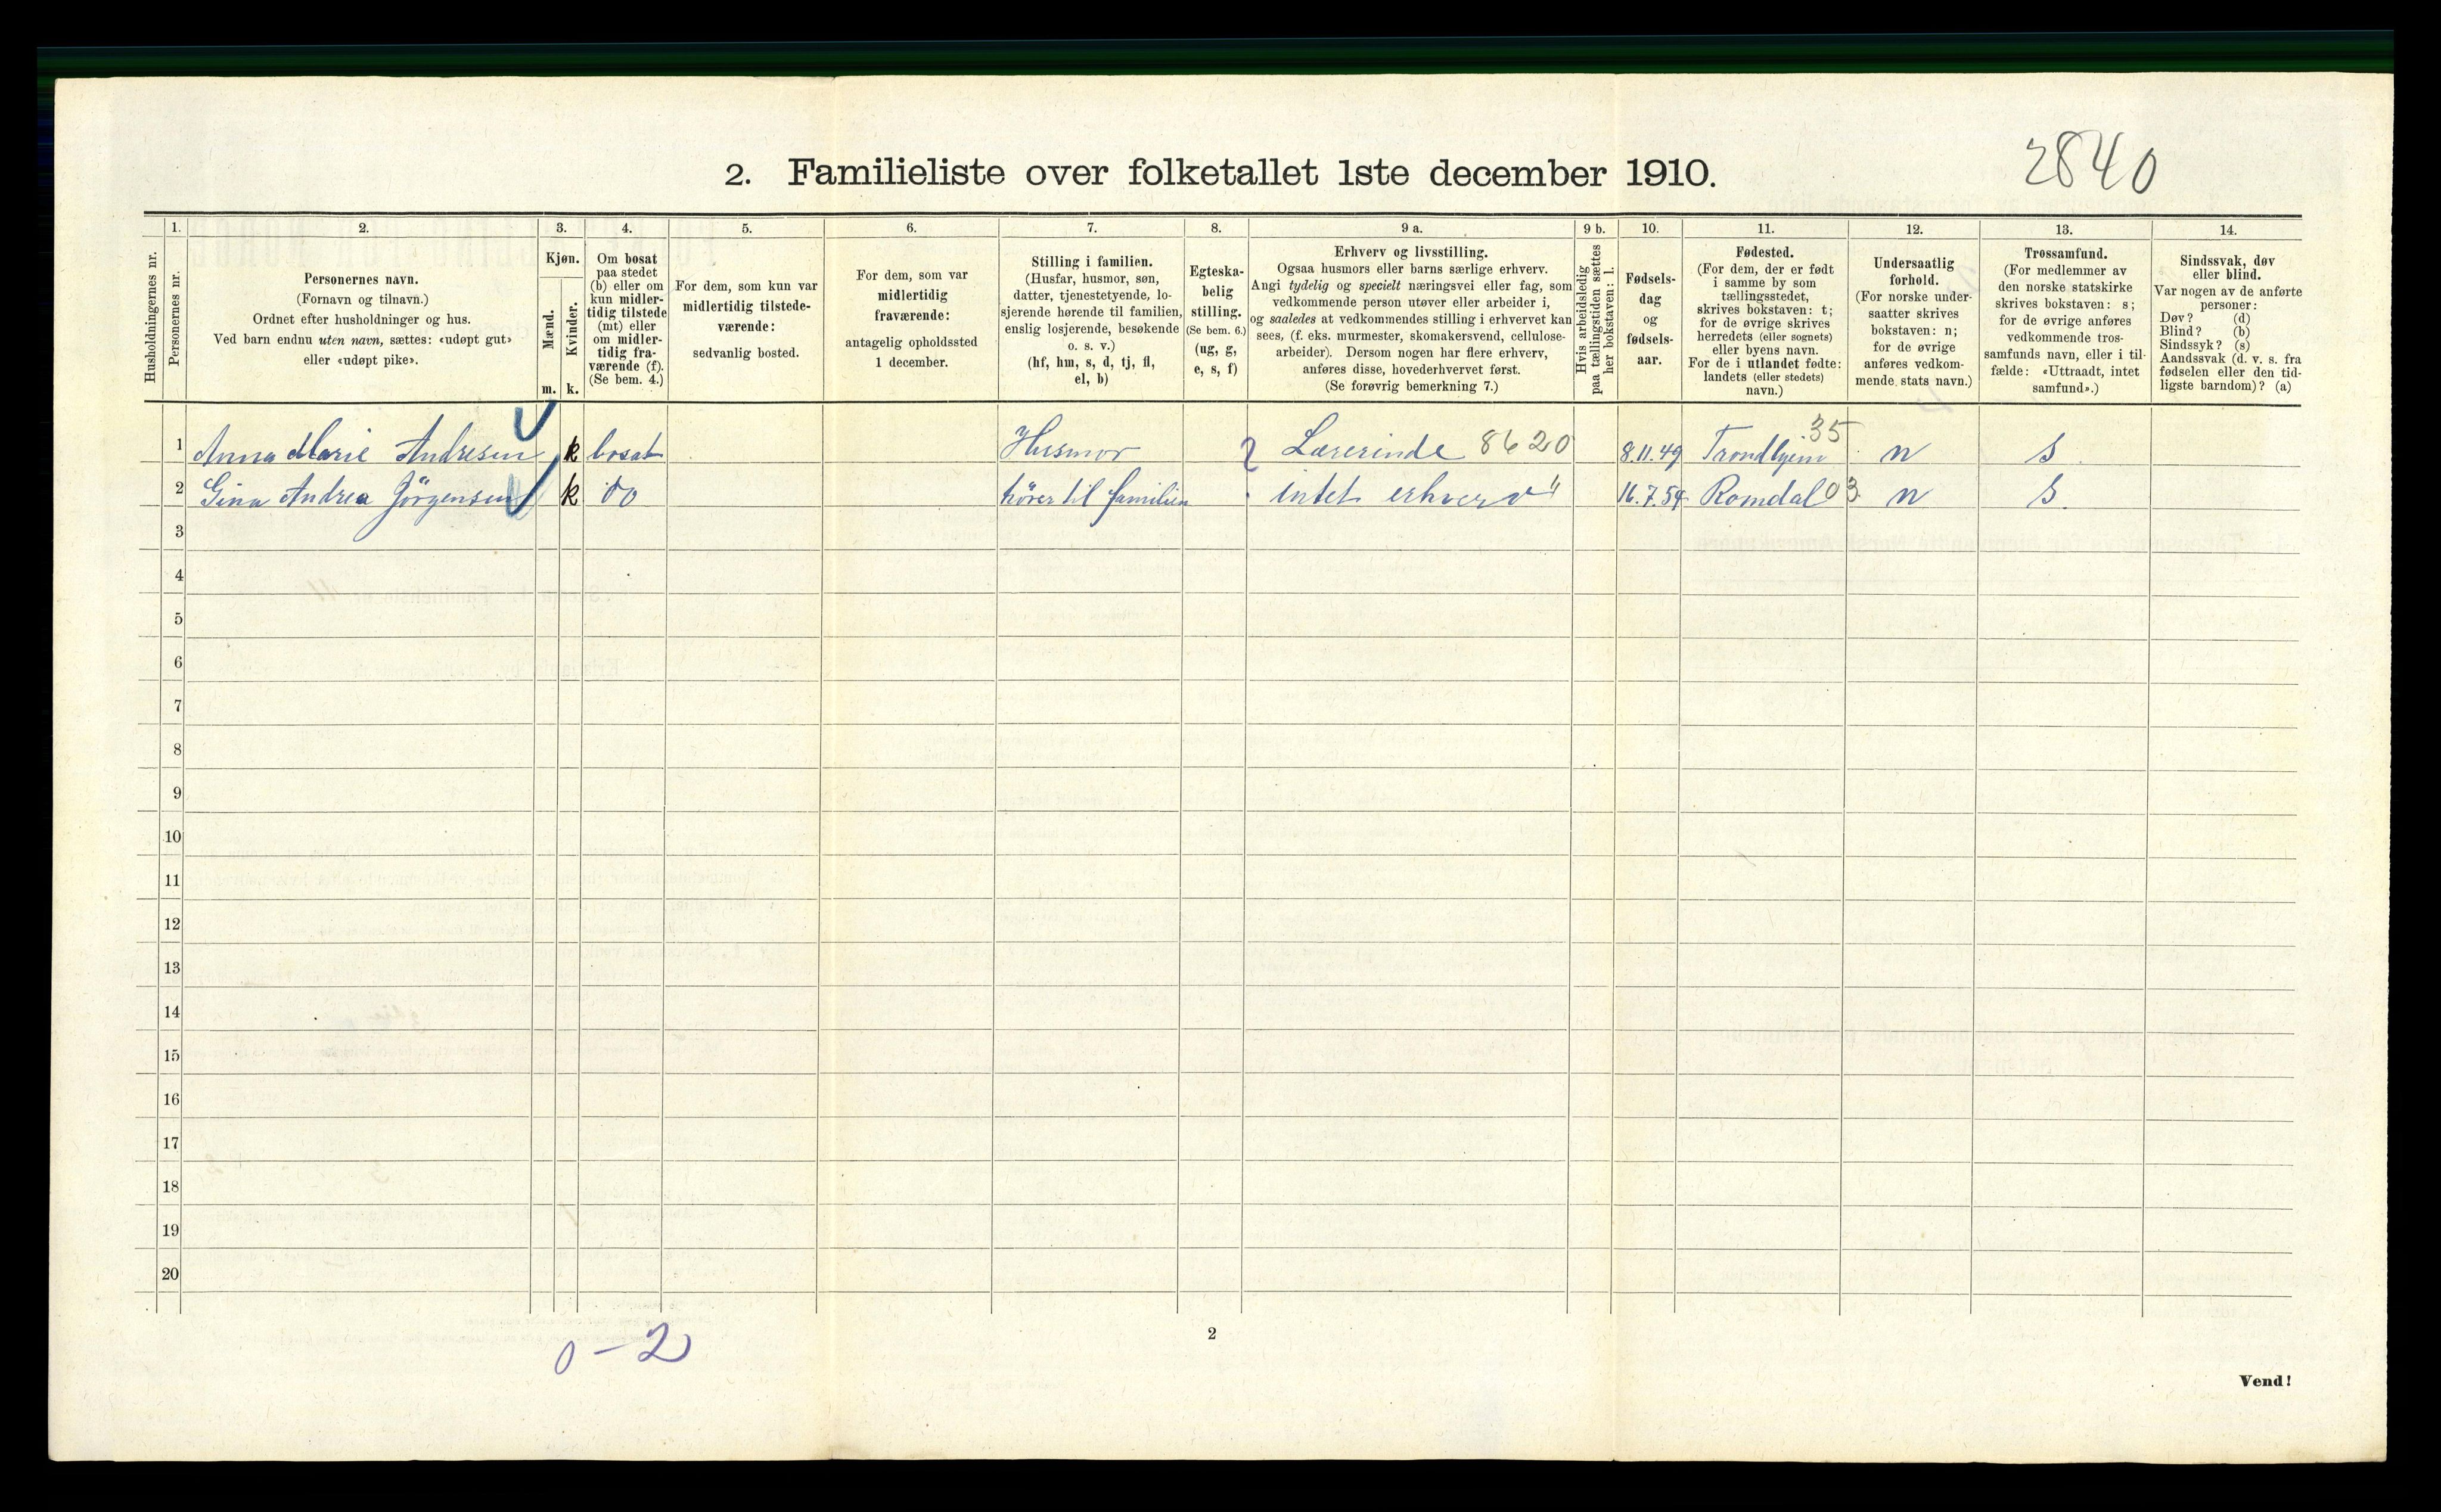 2. Familieliste over folketallet 1ste december 1910.
2840
Husholdningernes nr.
1.
Personernes nr.
2.
Personernes navn.
(Fornavn og tilnavn.)
Ordnet efter husholdninger og hus.
Ved barn endnu uten navn, sættes: «udøpt gut»
eller «udøpt pike».
3.
Kjøn.
Mænd.
m.
Kvinder.
k.
4.
Om bosat
paa stedet
(b) eller om
kun midler-
tidig tilstede
(mt) eller
om midler-
tidig fra-
værende (f).
(Se bem. 4.)
5.
For dem, som kun var
midlertidig tilstede-
værende:
sedvanlig bosted.
6.
For dem, som var
midlertidig
fraværende:
antagelig opholdssted
1 december.
7.
Stilling i familien.
(Husfar, husmor, søn,
datter, tjenestetyende, lo-
sjerende hørende til familien,
enslig losjerende, besøkende
o. s. v.)
(hf, hm, s, d, tj, fl,
el, b)
8.
Egteska-
belig
stilling.
(Se bem. 6.)
(ug, g,
e, s, f)
9 a.
Erhverv og livsstilling.
Ogsaa husmors eller barns særlige erhverv.
Angi tydelig og specielt næringsvei eller fag, som
vedkommende person utøver eller arbeider i,
og saaledes at vedkommendes stilling i erhvervet kan
sees, (f. eks. murmester, skomakersvend, cellulose-
arbeider). Dersom nogen har flere erhverv,
anføres disse, hovederhvervet først.
(Se forøvrig bemerkning 7.)
9 b.
Hvis arbeidsledig
paa tællingstiden sættes
her bokstaven: l.
10.
Fødsels-
dag
og
fødsels-
aar.
11.
Fødested.
(For dem, der er født
i samme by som
tællingsstedet,
skrives bokstaven: t;
for de øvrige skrives
herredets (eller sognets)
eller byens navn.
For de i utlandet fødte:
landets (eller stedets)
navn.)
12.
Undersaatlig
forhold.
(For norske under-
saatter skrives
bokstaven: n;
for de øvrige
anføres vedkom-
mende stats navn.)
13.
Trossamfund.
(For medlemmer av
den norske statskirke
skrives bokstaven: s;
for de øvrige anføres
vedkommende tros-
samfunds navn, eller i til-
fælde: «Uttraadt, intet
samfund».)
14.
Sindssvak, døv
eller blind.
Var nogen av de anførte
personer:
Døv? (d)
Blind? (b)
Sindssyk? (s)
Aandssvak (d. v. s. fra
fødselen eller den tid-
ligste barndom)? (a)
1 Anna Marie Andresen k bosat Husmor Lærerinde 8620 8.11.49 Trondhjem 35 n s
2 Gina Andrea Jörgensen k do hörer til familien intet erhverv " 16.7.54 Romdal 03 n s.
3
4
5
6
7
8
9
10
11
12
13
14
15
16
17
18
19
20
0-2
2
Vend!